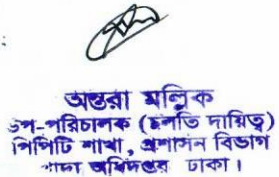 অন্তরা মল্লিক
উপ-পরিচালক (চলতি দায়িত্ব)
পিপিটি শাখা, প্রশাসন বিভাগ
খাদ্য অধিদপ্তর ঢাকা।